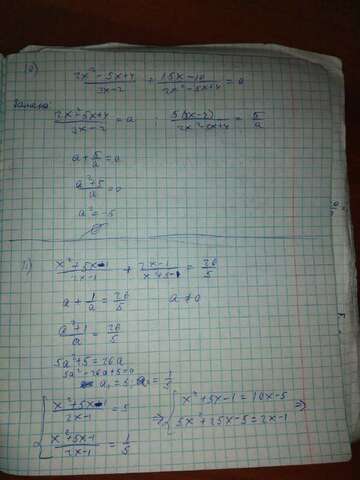 10)
(2x²-5x+4)/(3x-2) + (15x-10)/(2x²-5x+4) = 0
Замена
(2x²-5x+4)/(3x-2) = a ; 5(3x-2)/(2x²-5x+4) = 5/a
a + 5/a = 0
(a²+5)/a = 0
a² = -5
∅
11) (x²+5x-1)/(2x-1) + (2x-1)/(x²+5-1) = 26/5
a + 1/a = 26/5 a ≠ 0
(a²+1)/a = 26/5
5a²+5 = 26a
5a²-26a+5=0
a₁ = 5; a₂ = 1/5
{ (x²+5x-1)/(2x-1) = 5 ⇒ { x²+5x-1 = 10x-5 ⇒
(x²+5x-1)/(2x-1) = 1/5 5x²+25x-5 = 2x-1